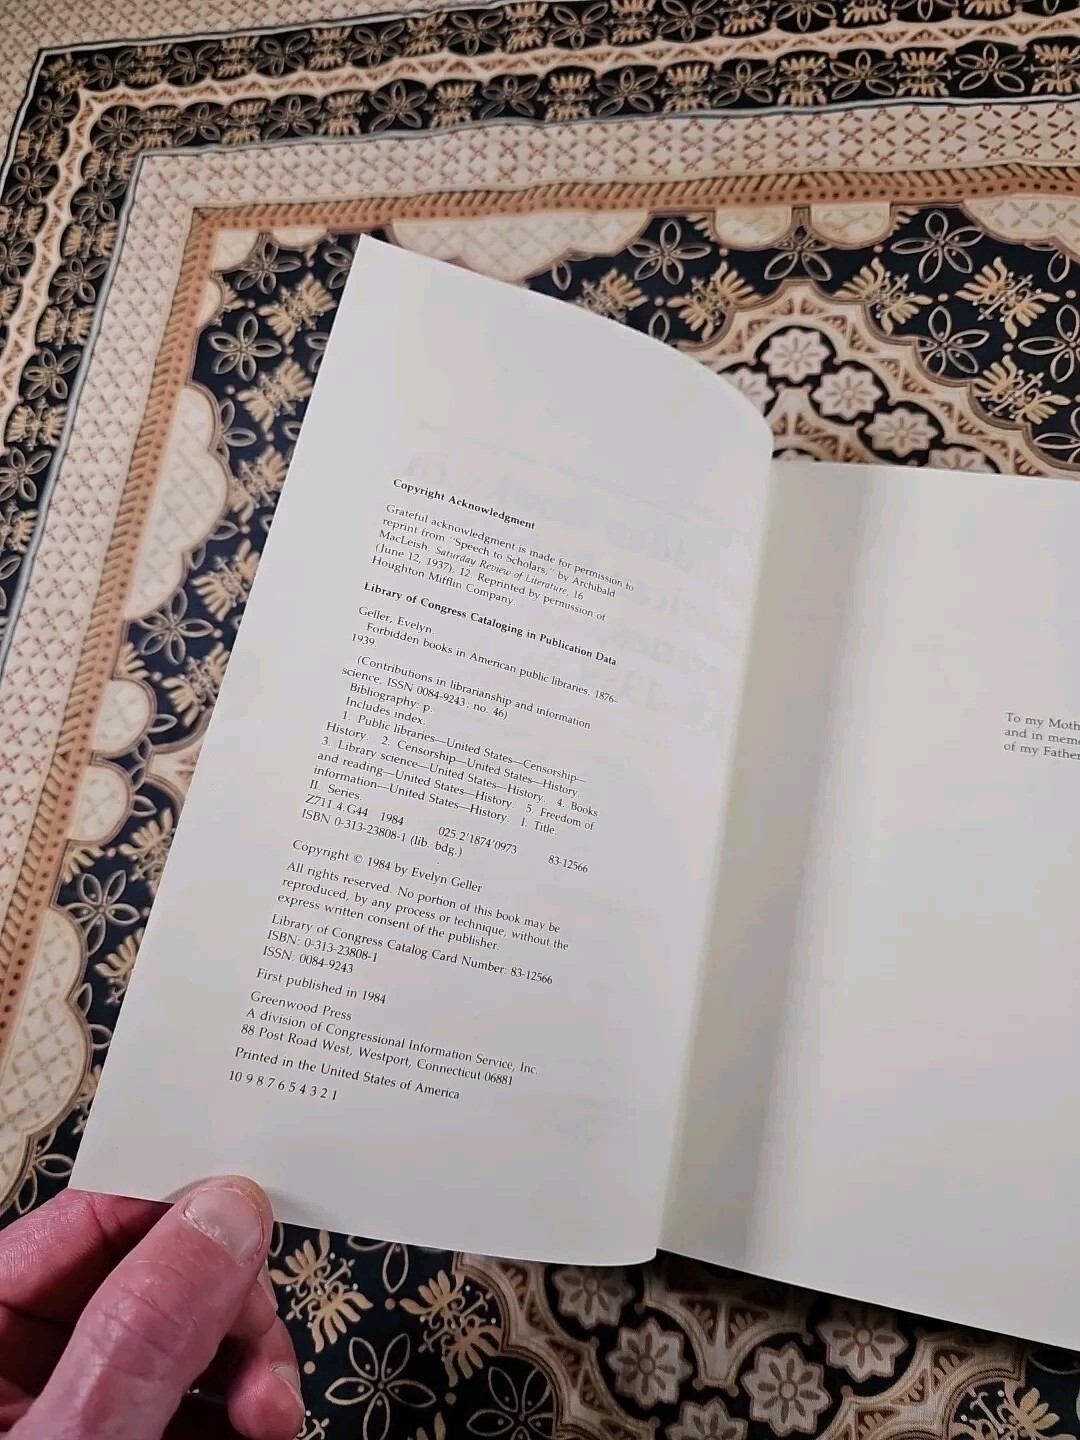 Copyright Acknowledgment
Grateful acknowledgment is made for permission to
reprint from "Speech to Scholars," by Archibald
MacLeish, Saturday Review of Literature, 16
(June 12, 1937), 12. Reprinted by permission of
Houghton Mifflin Company.
Library of Congress Cataloging in Publication Data
Geller, Evelyn.
Forbidden books in American public libraries, 1876–
1939.
(Contributions in librarianship and information
science, ISSN 0084-9243 ; no. 46)
Bibliography: p.
Includes index.
1. Public libraries—United States—Censorship—
History. 2. Censorship—United States—History.
3. Library science—United States—History. 4. Books
and reading—United States—History. 5. Freedom of
information—United States—History. I. Title.
II. Series.
Z711.4.G44 1984 025.2'1874'0973 83-12566
ISBN 0-313-23808-1 (lib. bdg.)
Copyright © 1984 by Evelyn Geller
All rights reserved. No portion of this book may be
reproduced, by any process or technique, without the
express written consent of the publisher.
Library of Congress Catalog Card Number: 83-12566
ISBN: 0-313-23808-1
ISSN: 0084-9243
First published in 1984
Greenwood Press
A division of Congressional Information Service, Inc.
88 Post Road West, Westport, Connecticut 06881
Printed in the United States of America
10 9 8 7 6 5 4 3 2 1
To my Moth
and in memo
of my Father